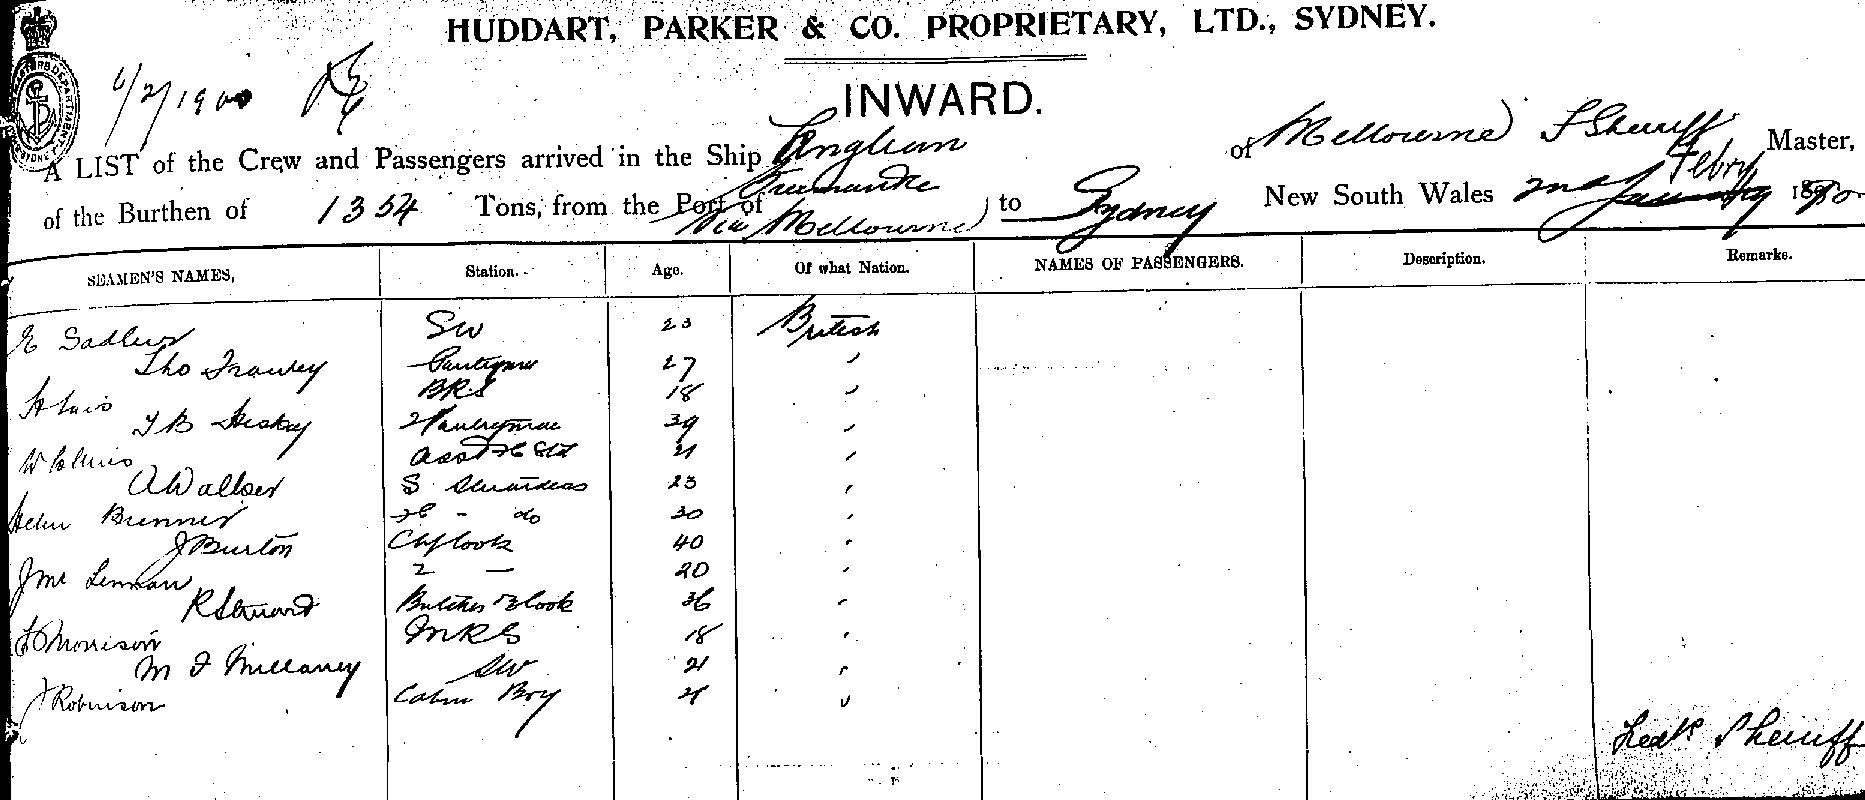 HUDDART, PARKER & CO. PROPRIETARY, LTD., SYDNEY.
6/2/1900
INWARD.
A LIST of the Crew and Passengers arrived in the Ship Anglian of Melbourne F Sherriff Master,
of the Burthen of 1354 Tons, from the Port of Fremantle via Melbourne to Sydney New South Wales 2nd Febry
SEAMEN'S NAMES, Station. Age. Of what Nation. NAMES OF PASSENGERS. Description. Remarks.
E Sadleir SW 23 British
Tho Trawley Pantryman 27 "
BRS 18 "
T B Heskey 2 Pantryman 39 "
W Collins Asst 21 "
A Walker S Stewardess 23 "
Helen Brenner do 30 "
J Burton Chf Cook 40 "
J Mc Lennan 2 — 20 "
R Steward Butcher & Cook 36 "
F Morrison MRS 18 "
M F Millaney SW 21 "
J Robinson Cabin Boy "
Fredk Sherriff